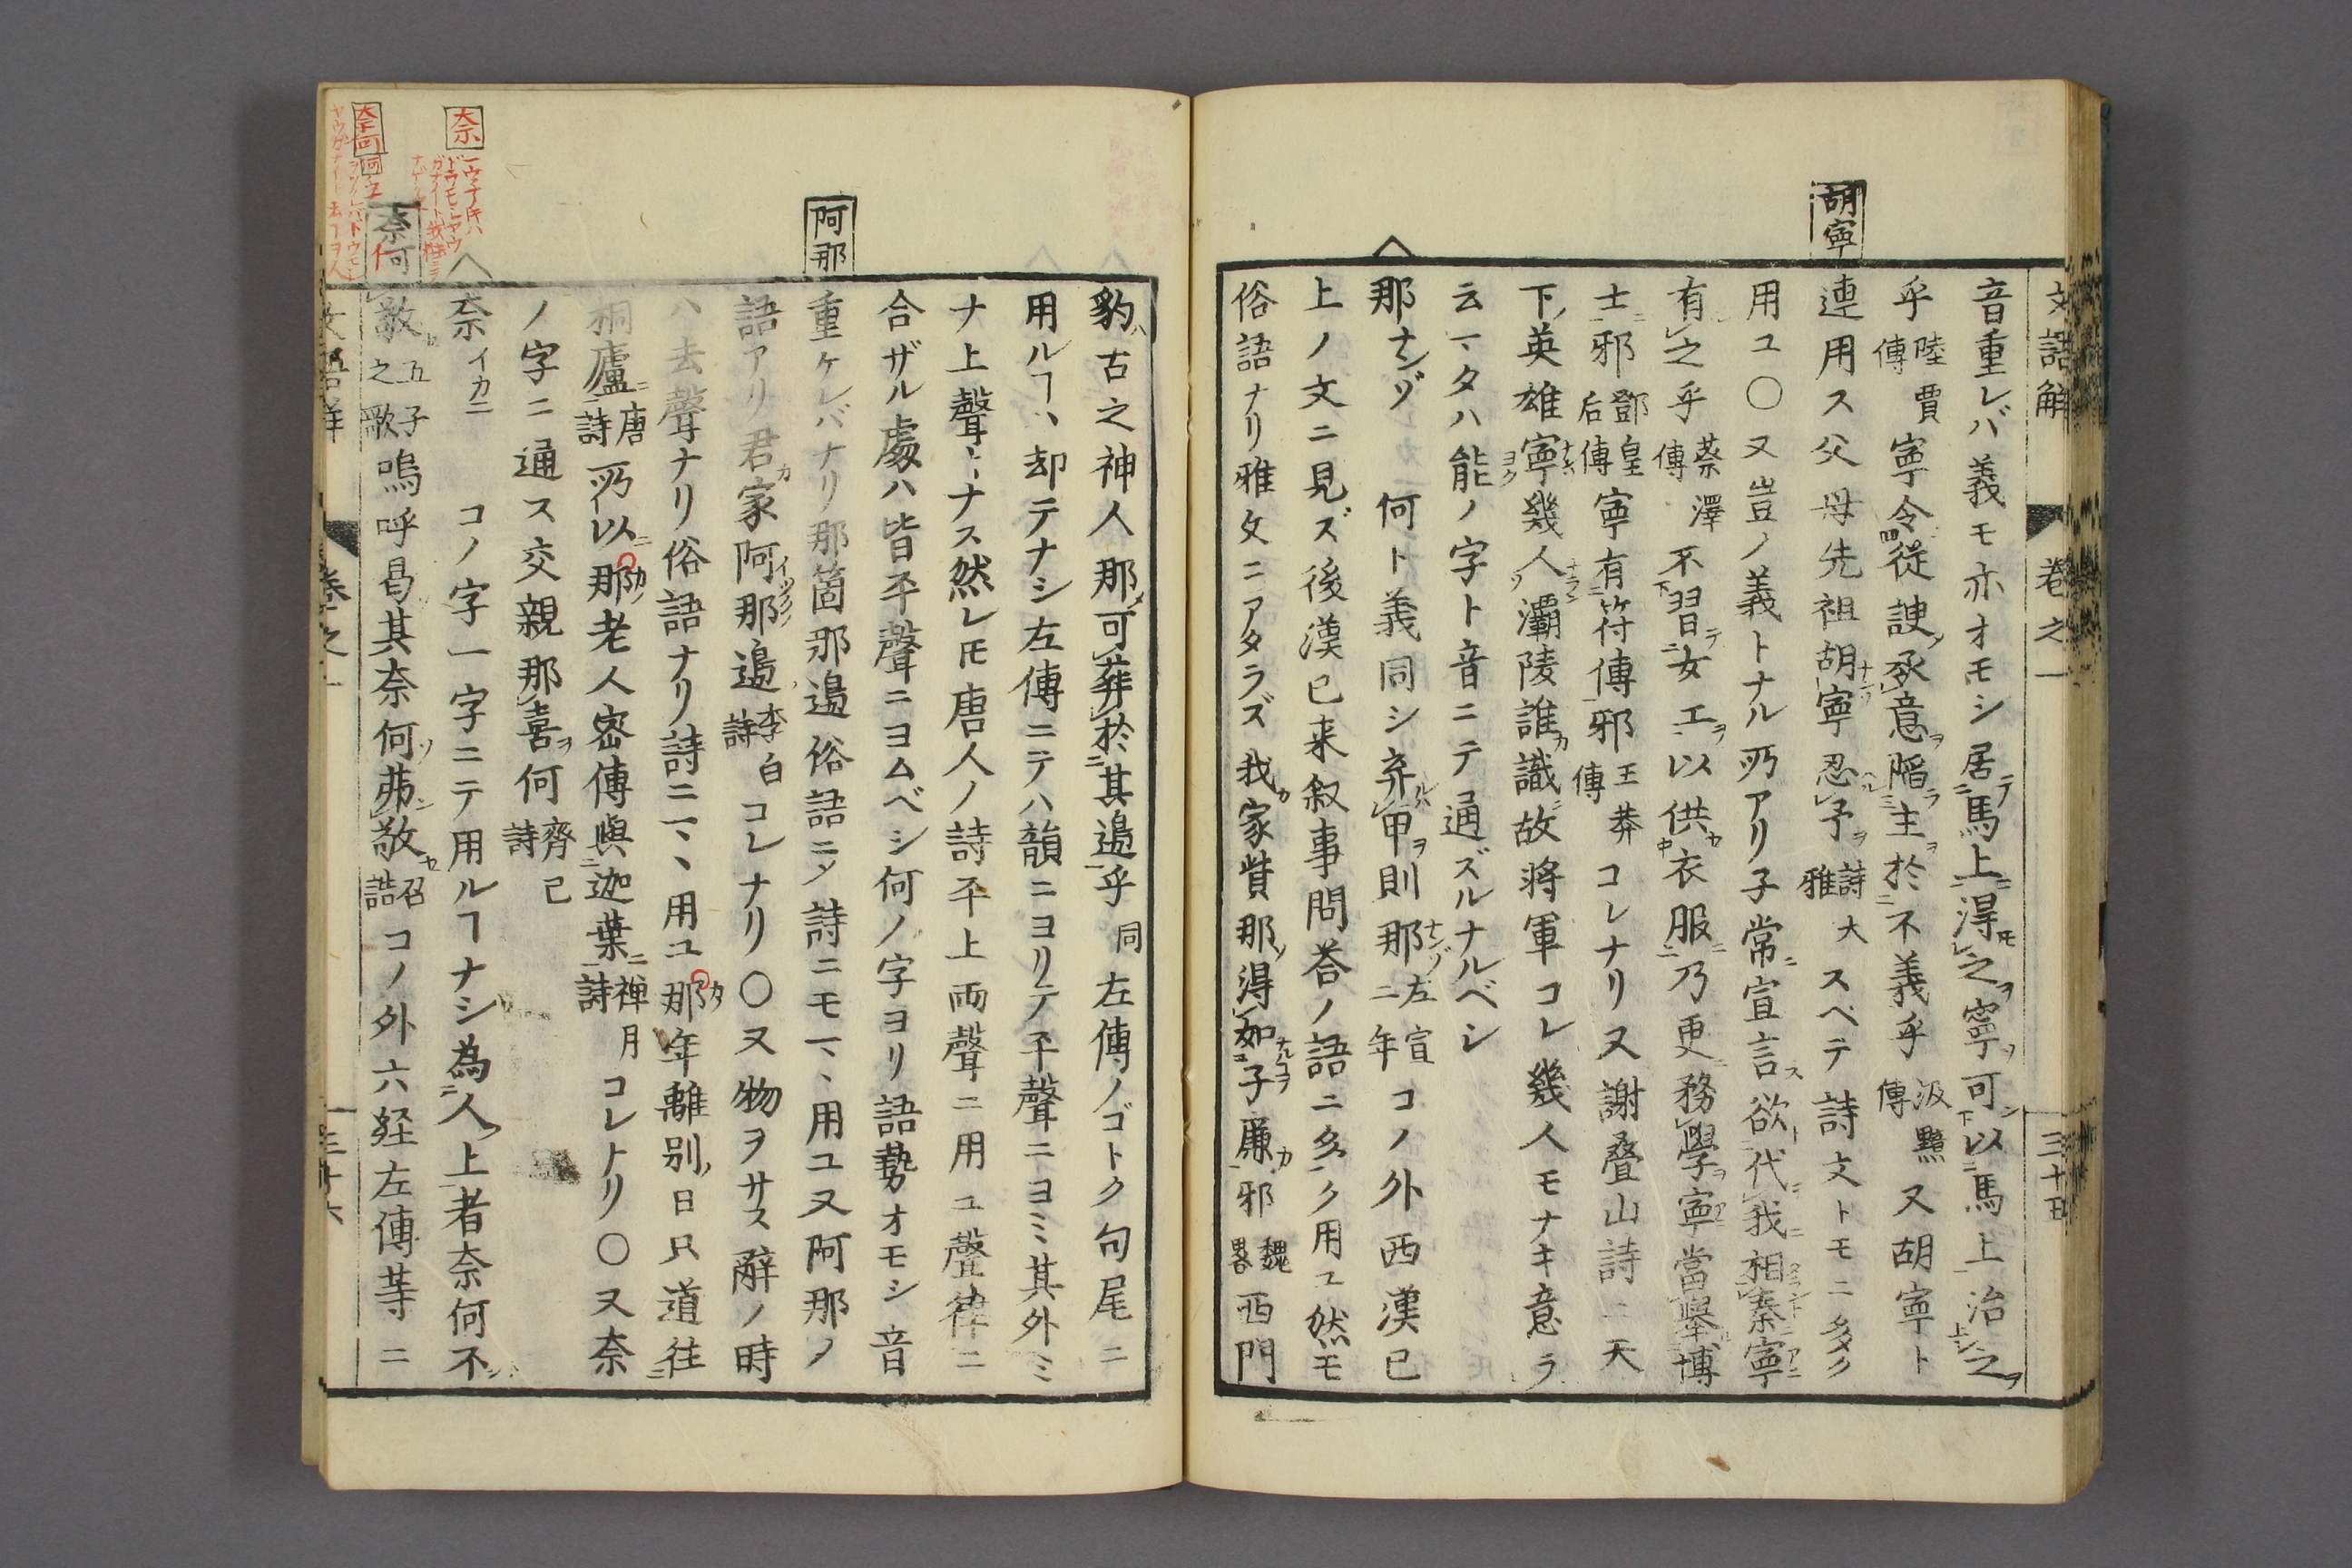 文語解 卷之一 三十五
胡寧
音重レバ義モ亦オモシ居馬上得之寧可以馬上治之
乎陸賈傳寧令從諛承意陷主於不義乎汲黯傳又胡寧ト
連用ス父母先祖胡寧忍予詩大雅スベテ詩文トモニ多ク
用ユ〇又豈ノ義トナル所アリ子常宣言欲代我相秦寧
有之乎蔡澤傳不習女工以供衣服乃更務學寧當舉博
士邪鄧皇后傳寧有符傳邪王莽傳コレナリ又謝疊山詩ニ天
下英雄寧幾人灞陵誰識故將軍コレ幾人モナキ意ラ
云マタハ能ノ字ト音ニテ通ズルナルベシ
那ナンゾ 何ト義同シ弃甲則那左宣二年コノ外西漢已
上ノ文ニ見ズ後漢已来叙事問荅ノ語ニ多ク用ユ然モ
俗語ナリ雅文ニアタラズ我家貲那得如子廉邪魏畧西門
豹古之神人那可葬於其邉乎同左傳ノゴトク句尾ニ
用ルヿハ却テナシ左傳ニテハ韻ニヨリテ平聲ニヨミ其外ミ
ナ上聲ヽナス然レ𪜈唐人ノ詩平上両聲ニ用ユ聲律ニ
合ザル處ハ皆平聲ニヨムベシ何ノ字ヨリ語勢オモシ音
阿那
重ケレバナリ那箇那邉俗語ニ〆詩ニモマヽ用ユ又阿那ノ
語アリ君家阿那邉李白詩コレナリ〇又物ヲサス辭ノ時
ハ去聲ナリ俗語ナリ詩ニマヽ用ユ那年離別日只道往
桐廬唐詩所以那老人密傳與迦葉禅月詩コレナリ〇又奈
ノ字ニ通ス交親那喜何齊己詩
奈イカニ コノ字一字ニテ用ルヿナシ為人上者奈何不
奈何
敬五子之歌嗚呼曷其奈何弗敬召誥コノ外六経左傳等ニ
奈